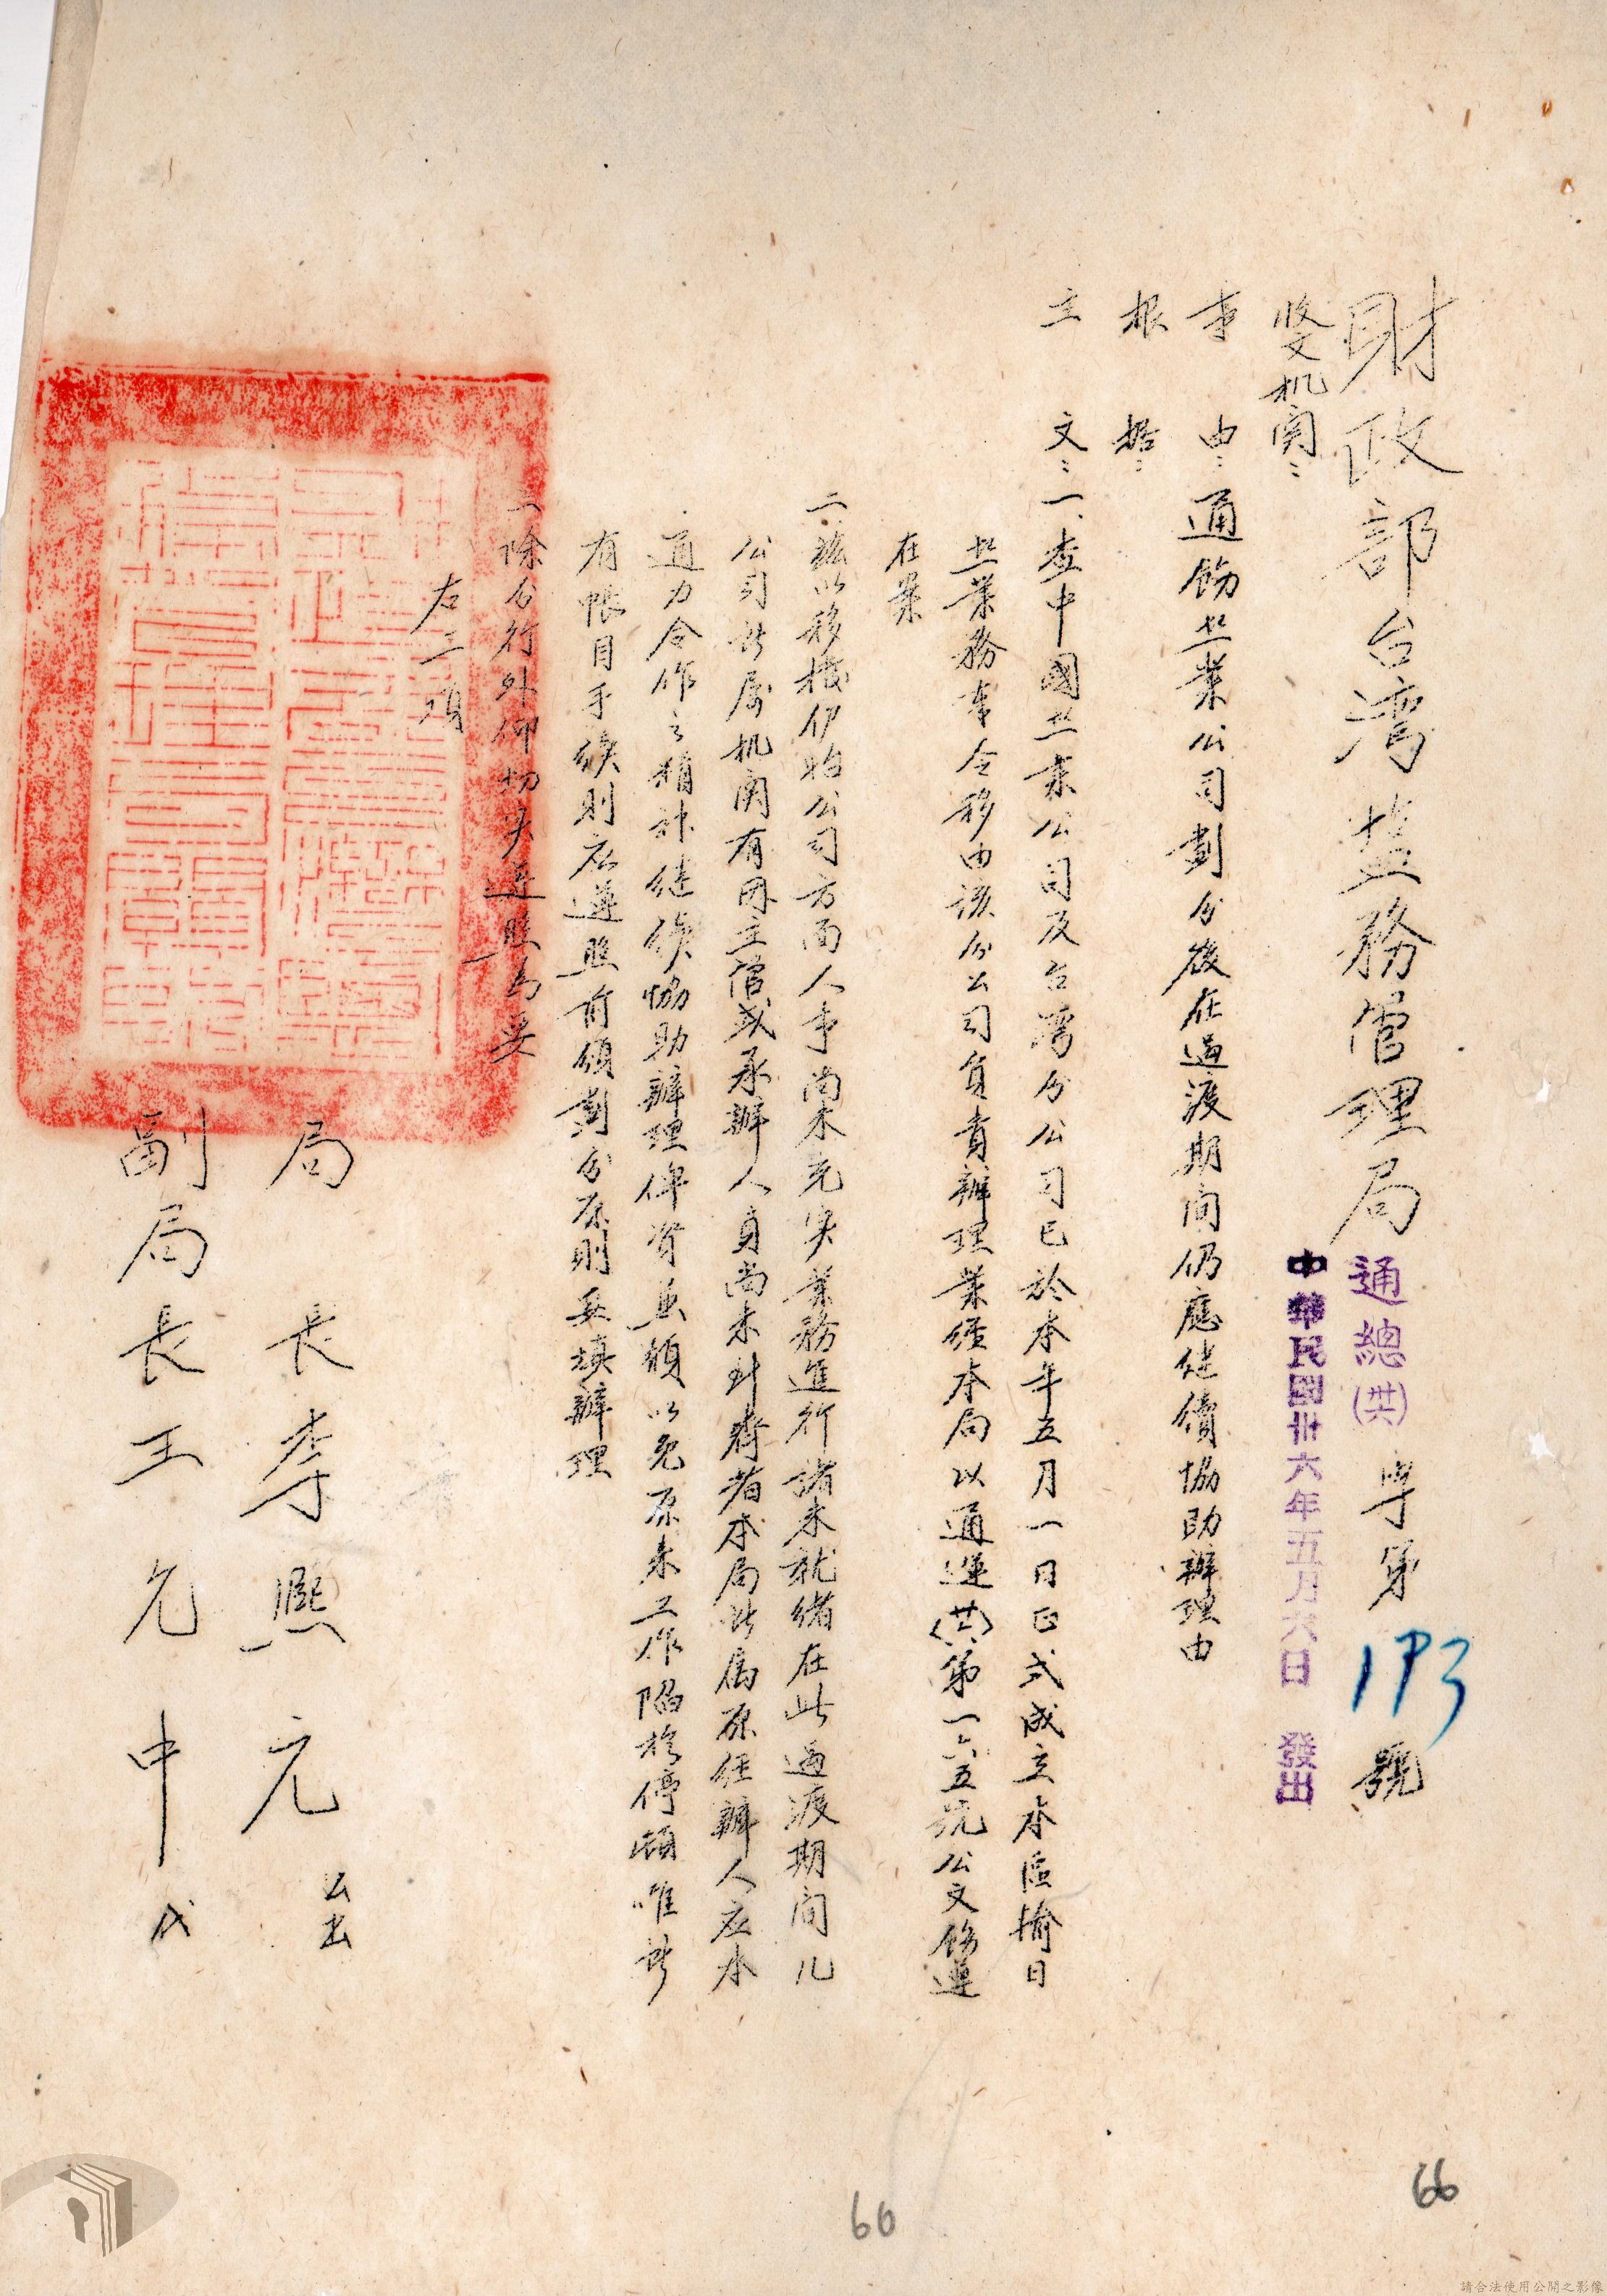 財政部台湾塩務管理局 通總(卅六)字第193號
中華民國卅六年五月六日 發出
收文机関：
事 由：通飭塩業公司劃分後在過渡期间仍應继續協助辦理由
根 据：
主 文：一.查中國塩業公司及台湾分公司已於本年五月一日正式成立本區輸日
塩業務事全移由該分公司負責辦理業經本局以通運(卅六)第一六五號公文飭遵
在案
二.茲以移接伊始公司方面人事尚未充实業務進行諸未就绪在此過渡期间凡
公司所属机関有因主管或承辦人員尚未到齊者本局所属原任辦人应本
通力合作之精神继续協助辦理俾资兼顧以免原来工作陷於停頓唯所
有帳目手续則应遵照前頒劃分原則妥填辦理
一除分行外仰切实遵照為要
右二項
局 長 李熙元 公出
副局長 王允中 代
66
66
請合法使用公開之影像